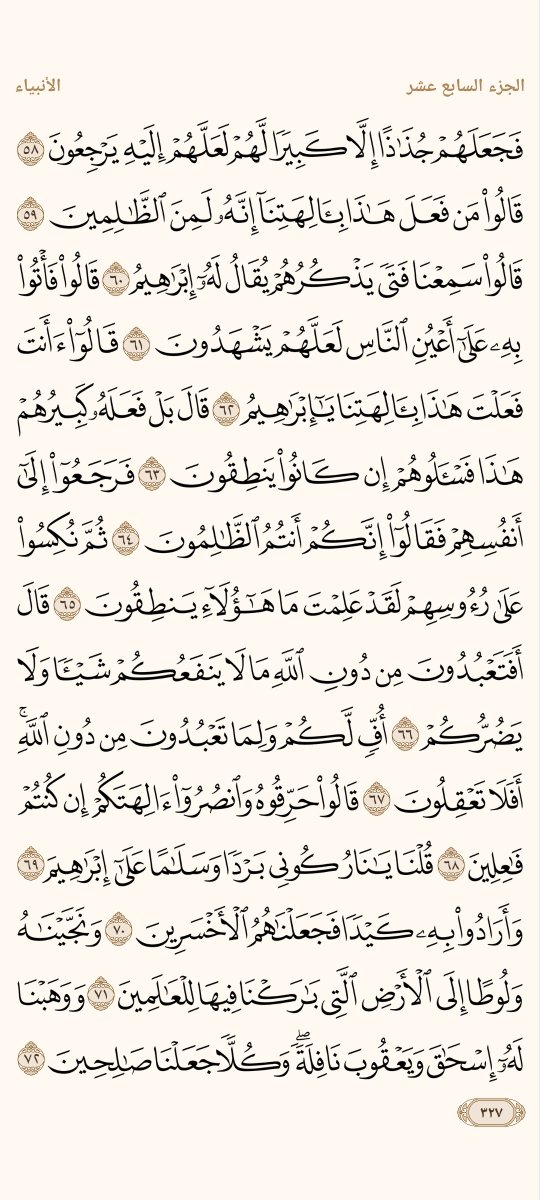 الجزء السابع عشر
الأنبياء
فَجَعَلَهُمْ جُذَٰذًا إِلَّا كَبِيرًا لَّهُمْ لَعَلَّهُمْ إِلَيْهِ يَرْجِعُونَ ٥٨
قَالُوا۟ مَن فَعَلَ هَـٰذَا بِـَٔالِهَتِنَآ إِنَّهُۥ لَمِنَ ٱلظَّـٰلِمِينَ ٥٩
قَالُوا۟ سَمِعْنَا فَتًى يَذْكُرُهُمْ يُقَالُ لَهُۥٓ إِبْرَٰهِيمُ ٦٠ قَالُوا۟ فَأْتُوا۟
بِهِۦ عَلَىٰٓ أَعْيُنِ ٱلنَّاسِ لَعَلَّهُمْ يَشْهَدُونَ ٦١ قَالُوٓا۟ ءَأَنتَ
فَعَلْتَ هَـٰذَا بِـَٔالِهَتِنَا يَـٰٓإِبْرَٰهِيمُ ٦٢ قَالَ بَلْ فَعَلَهُۥ كَبِيرُهُمْ
هَـٰذَا فَسْـَٔلُوهُمْ إِن كَانُوا۟ يَنطِقُونَ ٦٣ فَرَجَعُوٓا۟ إِلَىٰٓ
أَنفُسِهِمْ فَقَالُوٓا۟ إِنَّكُمْ أَنتُمُ ٱلظَّـٰلِمُونَ ٦٤ ثُمَّ نُكِسُوا۟
عَلَىٰ رُءُوسِهِمْ لَقَدْ عَلِمْتَ مَا هَـٰٓؤُلَآءِ يَنطِقُونَ ٦٥ قَالَ
أَفَتَعْبُدُونَ مِن دُونِ ٱللَّهِ مَا لَا يَنفَعُكُمْ شَيْـًٔا وَلَا
يَضُرُّكُمْ ٦٦ أُفٍّ لَّكُمْ وَلِمَا تَعْبُدُونَ مِن دُونِ ٱللَّهِ ۚ
أَفَلَا تَعْقِلُونَ ٦٧ قَالُوا۟ حَرِّقُوهُ وَٱنصُرُوٓا۟ ءَالِهَتَكُمْ إِن كُنتُمْ
فَـٰعِلِينَ ٦٨ قُلْنَا يَـٰنَارُ كُونِى بَرْدًا وَسَلَـٰمًا عَلَىٰٓ إِبْرَٰهِيمَ ٦٩
وَأَرَادُوا۟ بِهِۦ كَيْدًا فَجَعَلْنَـٰهُمُ ٱلْأَخْسَرِينَ ٧٠ وَنَجَّيْنَـٰهُ
وَلُوطًا إِلَى ٱلْأَرْضِ ٱلَّتِى بَـٰرَكْنَا فِيهَا لِلْعَـٰلَمِينَ ٧١ وَوَهَبْنَا
لَهُۥٓ إِسْحَـٰقَ وَيَعْقُوبَ نَافِلَةً ۖ وَكُلًّا جَعَلْنَا صَـٰلِحِينَ ٧٢
٣٢٧